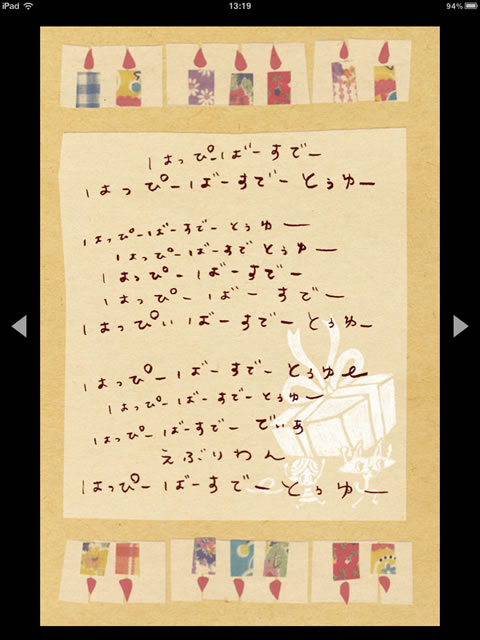 iPad 13:19 94%
はっぴーばーすでー
はっぴーばーすでーとぅゆー
はっぴーばーすでーとぅゆー
はっぴーばーすでーとぅゆー
はっぴーばーすでー
はっぴーばーすでー
はっぴぃばーすでーとぅゆー
はっぴーばーすでーとぅゆe
はっぴーばーすでーとぅゆー
はっぴーばーすでーでぃあ
えぶりわん
はっぴーばーすでーとぅゆー